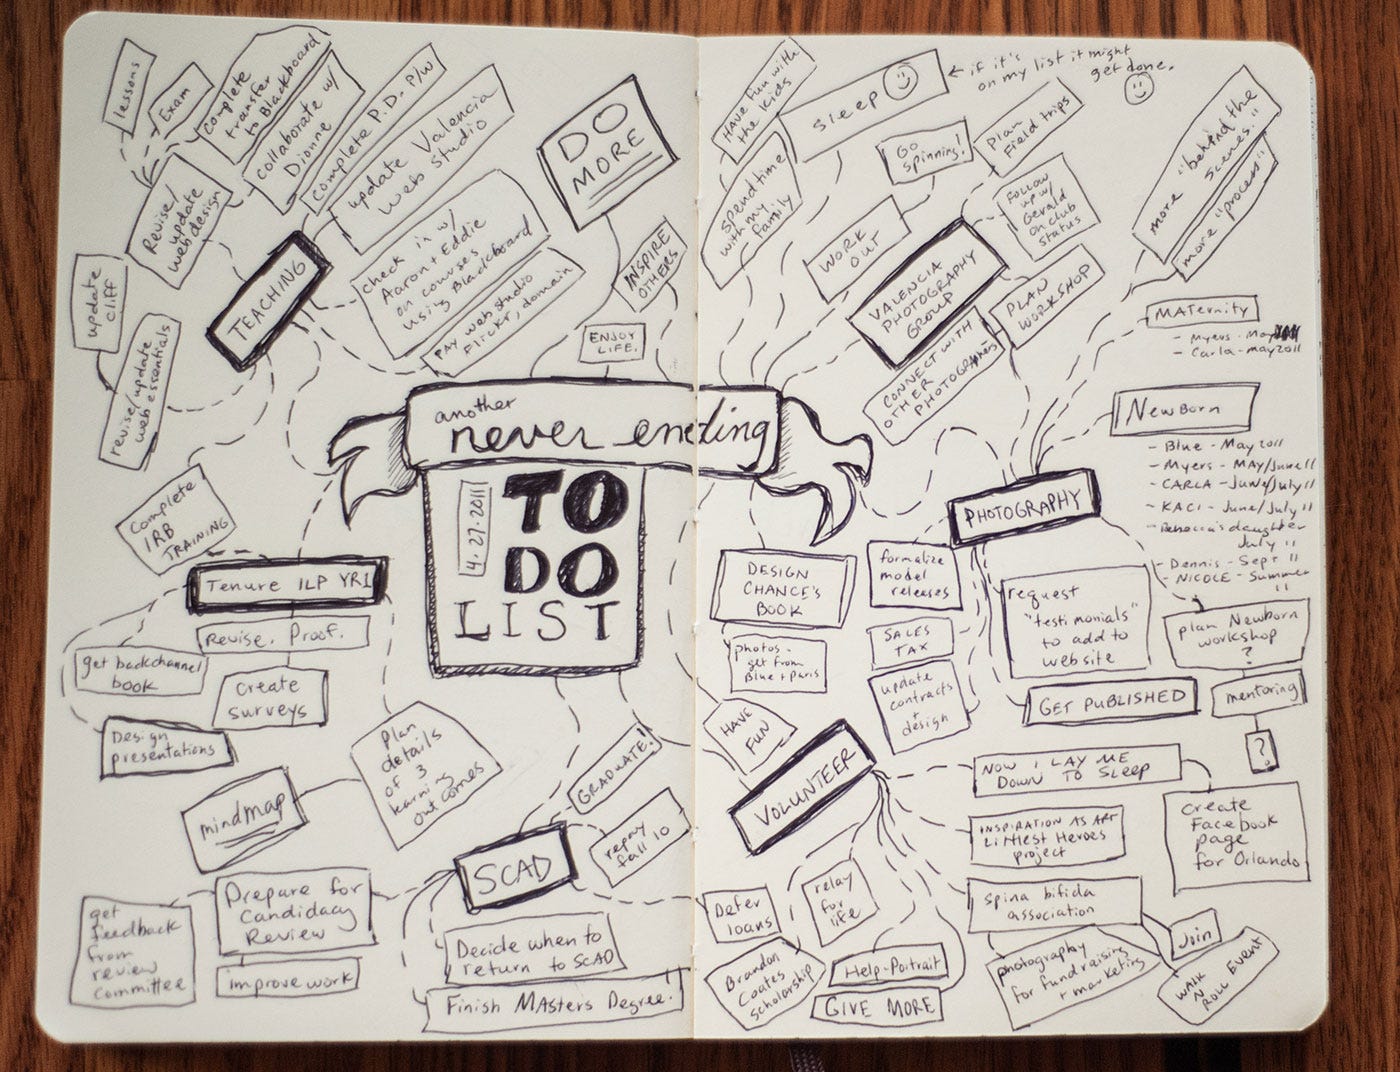 lessons
Exam
Complete
transfer
to Blackboard
collaborate w/
Dionne
complete P.D. P/W
update Valencia
web studio
Revise/
update
web design
update
cliff
revise/update
web essentials
TEACHING
check in w/
Aaron + Eddie
on courses
using Blackboard
PAY web studio
Flickr, domain
DO
MORE
INSPIRE
OTHERS
ENJOY
LIFE.
another
never ending
4.27.2011
TO
DO
LIST
Complete
IRB
TRAINING
Tenure ILP YR1
Revise. Proof.
get backchannel
book
Create
surveys
Design
presentations
mindmap
plan
details
of 3
learning
outcomes
GRADUATE!
repay
fall 10
SCAD
Prepare for
Candidacy
Review
get
feedback
from
review
committee
improve work
Decide when to
return to SCAD
Finish Masters Degree!
HAVE Fun with
the kids
spend time
with my
family
sleep
← if it's
on my list it might
get done.
Go
spinning!
WORK
OUT
Plan
Field trips
FOLLOW
up w/
Gerald
on club
status
VALENCIA
PHOTOGRAPHY
GROUP
PLAN
WORKSHOP
CONNECT WITH
OTHER
PHOTOGRAPHERS
more "behind the
Scenes."
more "process"
MATernity
- Myers - May
- Carla - may 2011
NewBorn
- Blue - May 2011
- Myers - MAY/June 11
- CARLA - June/July 11
- KACI - June/July 11
- Rebecca's daughter
July 11
- Dennis - Sept 11
- NICOLE - Summer
11
PHOTOGRAPHY
formalize
model
releases
SALES
TAX
update
contracts
+
design
request
"testimonials"
to add to
website
GET PUBLISHED
plan Newborn
workshop
?
mentoring
?
DESIGN
CHANCE'S
BOOK
photos -
get from
Blue + Paris
HAVE
FUN
VOLUNTEER
NOW I LAY ME
DOWN TO SLEEP
create
Facebook
page
for Orlando
INSPIRATION AS ART
LITTLEST HEROES
project
spina bifida
association
Join
WALK
N
ROLL EVENT
photography
for fundraising
+ marketing
Defer
loans
relay
for
life
Brandon
Coates
Scholarship
Help-Portrait
GIVE MORE